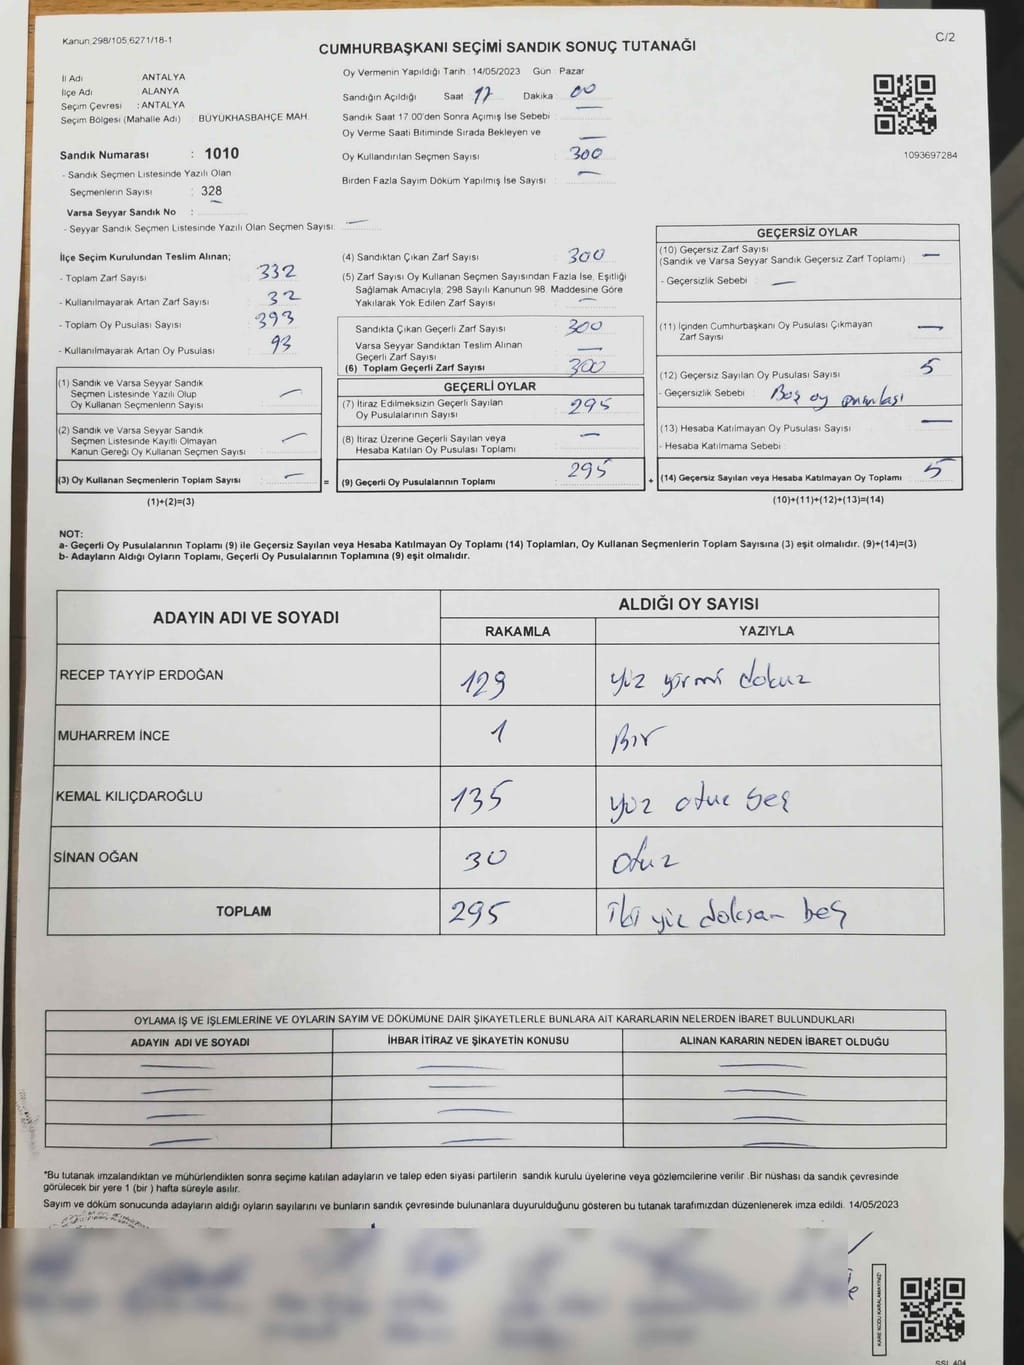 Kanun 298/105,6271/18-1
C/2
CUMHURBAŞKANI SEÇİMİ SANDIK SONUÇ TUTANAĞI
İl Adı ANTALYA
İlçe Adı ALANYA
Seçim Çevresi : ANTALYA
Seçim Bölgesi (Mahalle Adı) : BÜYÜKHASBAHÇE MAH.
Sandık Numarası : 1010
- Sandık Seçmen Listesinde Yazılı Olan
Seçmenlerin Sayısı : 328
Varsa Seyyar Sandık No :
- Seyyar Sandık Seçmen Listesinde Yazılı Olan Seçmen Sayısı: —
Oy Vermenin Yapıldığı Tarih 14/05/2023 Gün Pazar
Sandığın Açıldığı Saat 17 Dakika 00
Sandık Saat 17 00'den Sonra Açılmış İse Sebebi : —
Oy Verme Saati Bitiminde Sırada Bekleyen ve —
Oy Kullandırılan Seçmen Sayısı : 300
Birden Fazla Sayım Döküm Yapılmış İse Sayısı : —
1093697284
İlçe Seçim Kurulundan Teslim Alınan;
- Toplam Zarf Sayısı : 332
- Kullanılmayarak Artan Zarf Sayısı : 32
- Toplam Oy Pusulası Sayısı : 393
- Kullanılmayarak Artan Oy Pusulası : 93
(1) Sandık ve Varsa Seyyar Sandık
Seçmen Listesinde Yazılı Olup
Oy Kullanan Seçmenlerin Sayısı : —
(2) Sandık ve Varsa Seyyar Sandık
Seçmen Listesinde Kayıtlı Olmayan
Kanun Gereği Oy Kullanan Seçmen Sayısı : —
(3) Oy Kullanan Seçmenlerin Toplam Sayısı : —
(1)+(2)=(3)
=
(4) Sandıktan Çıkan Zarf Sayısı : 300
(5) Zarf Sayısı Oy Kullanan Seçmen Sayısından Fazla İse, Eşitliği
Sağlamak Amacıyla; 298 Sayılı Kanunun 98. Maddesine Göre
Yakılarak Yok Edilen Zarf Sayısı : —
Sandıkta Çıkan Geçerli Zarf Sayısı : 300
Varsa Seyyar Sandıktan Teslim Alınan
Geçerli Zarf Sayısı : —
(6) Toplam Geçerli Zarf Sayısı : 300
GEÇERLİ OYLAR
(7) İtiraz Edilmeksizin Geçerli Sayılan
Oy Pusulalarının Sayısı : 295
(8) İtiraz Üzerine Geçerli Sayılan veya
Hesaba Katılan Oy Pusulası Toplamı : —
(9) Geçerli Oy Pusulalarının Toplamı : 295
+
GEÇERSİZ OYLAR
(10) Geçersiz Zarf Sayısı
(Sandık ve Varsa Seyyar Sandık Geçersiz Zarf Toplamı) : —
- Geçersizlik Sebebi : —
(11) İçinden Cumhurbaşkanı Oy Pusulası Çıkmayan
Zarf Sayısı : —
(12) Geçersiz Sayılan Oy Pusulası Sayısı : 5
- Geçersizlik Sebebi : Boş oy
(13) Hesaba Katılmayan Oy Pusulası Sayısı : —
- Hesaba Katılmama Sebebi :
(14) Geçersiz Sayılan veya Hesaba Katılmayan Oy Toplamı : 5
(10)+(11)+(12)+(13)=(14)
NOT:
a- Geçerli Oy Pusulalarının Toplamı (9) ile Geçersiz Sayılan veya Hesaba Katılmayan Oy Toplamı (14) Toplamları, Oy Kullanan Seçmenlerin Toplam Sayısına (3) eşit olmalıdır. (9)+(14)=(3)
b- Adayların Aldığı Oyların Toplamı, Geçerli Oy Pusulalarının Toplamına (9) eşit olmalıdır.
ADAYIN ADI VE SOYADI
ALDIĞI OY SAYISI
RAKAMLA YAZIYLA
RECEP TAYYİP ERDOĞAN 129 yüz yirmi dokuz
MUHARREM İNCE 1 Bir
KEMAL KILIÇDAROĞLU 135 yüz otuz beş
SİNAN OĞAN 30 otuz
TOPLAM 295 iki yüz doksan beş
OYLAMA İŞ VE İŞLEMLERİNE VE OYLARIN SAYIM VE DÖKÜMÜNE DAİR ŞİKAYETLERLE BUNLARA AİT KARARLARIN NELERDEN İBARET BULUNDUKLARI
ADAYIN ADI VE SOYADI İHBAR İTİRAZ VE ŞİKAYETİN KONUSU ALINAN KARARIN NEDEN İBARET OLDUĞU
*Bu tutanak imzalandıktan ve mühürlendikten sonra seçime katılan adayların ve talep eden siyasi partilerin sandık kurulu üyelerine veya gözlemcilerine verilir. Bir nüshası da sandık çevresinde
görülecek bir yere 1 (bir ) hafta süreyle asılır.
Sayım ve döküm sonucunda adayların aldığı oyların sayılarını ve bunların sandık çevresinde bulunanlara duyurulduğunu gösteren bu tutanak tarafımızdan düzenlenerek imza edildi. 14/05/2023
KARE KODU KARALAMAYINIZ!